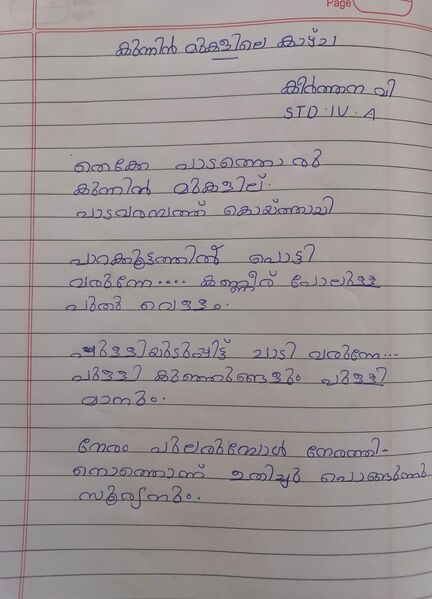 Page
കുന്നിൻ മുകളിലെ കാഴ്ച
കീർത്തന വി
STD. IV. A
തെക്കേ പാടത്തൊരു
കുന്നിൻ മുകളില്.
പാടവരമ്പത്ത് കൊയ്ത്തായി
പാറക്കൂട്ടത്തിൽ പൊട്ടി
വരുന്നേ.... കണ്ണീര് പോലുള്ള
പുതു വെള്ളം.
പുള്ളിയുടുപ്പിട്ട് ചാടി വരുന്നേ...
പുള്ളി കുഞ്ഞുങ്ങളും പുള്ളി
മാനും.
നേരം പുലരുമ്പോൾ നേരത്തി-
നൊത്തൊന്ന് ഉദിച്ചു പൊങ്ങുന്നു
സൂര്യനും.